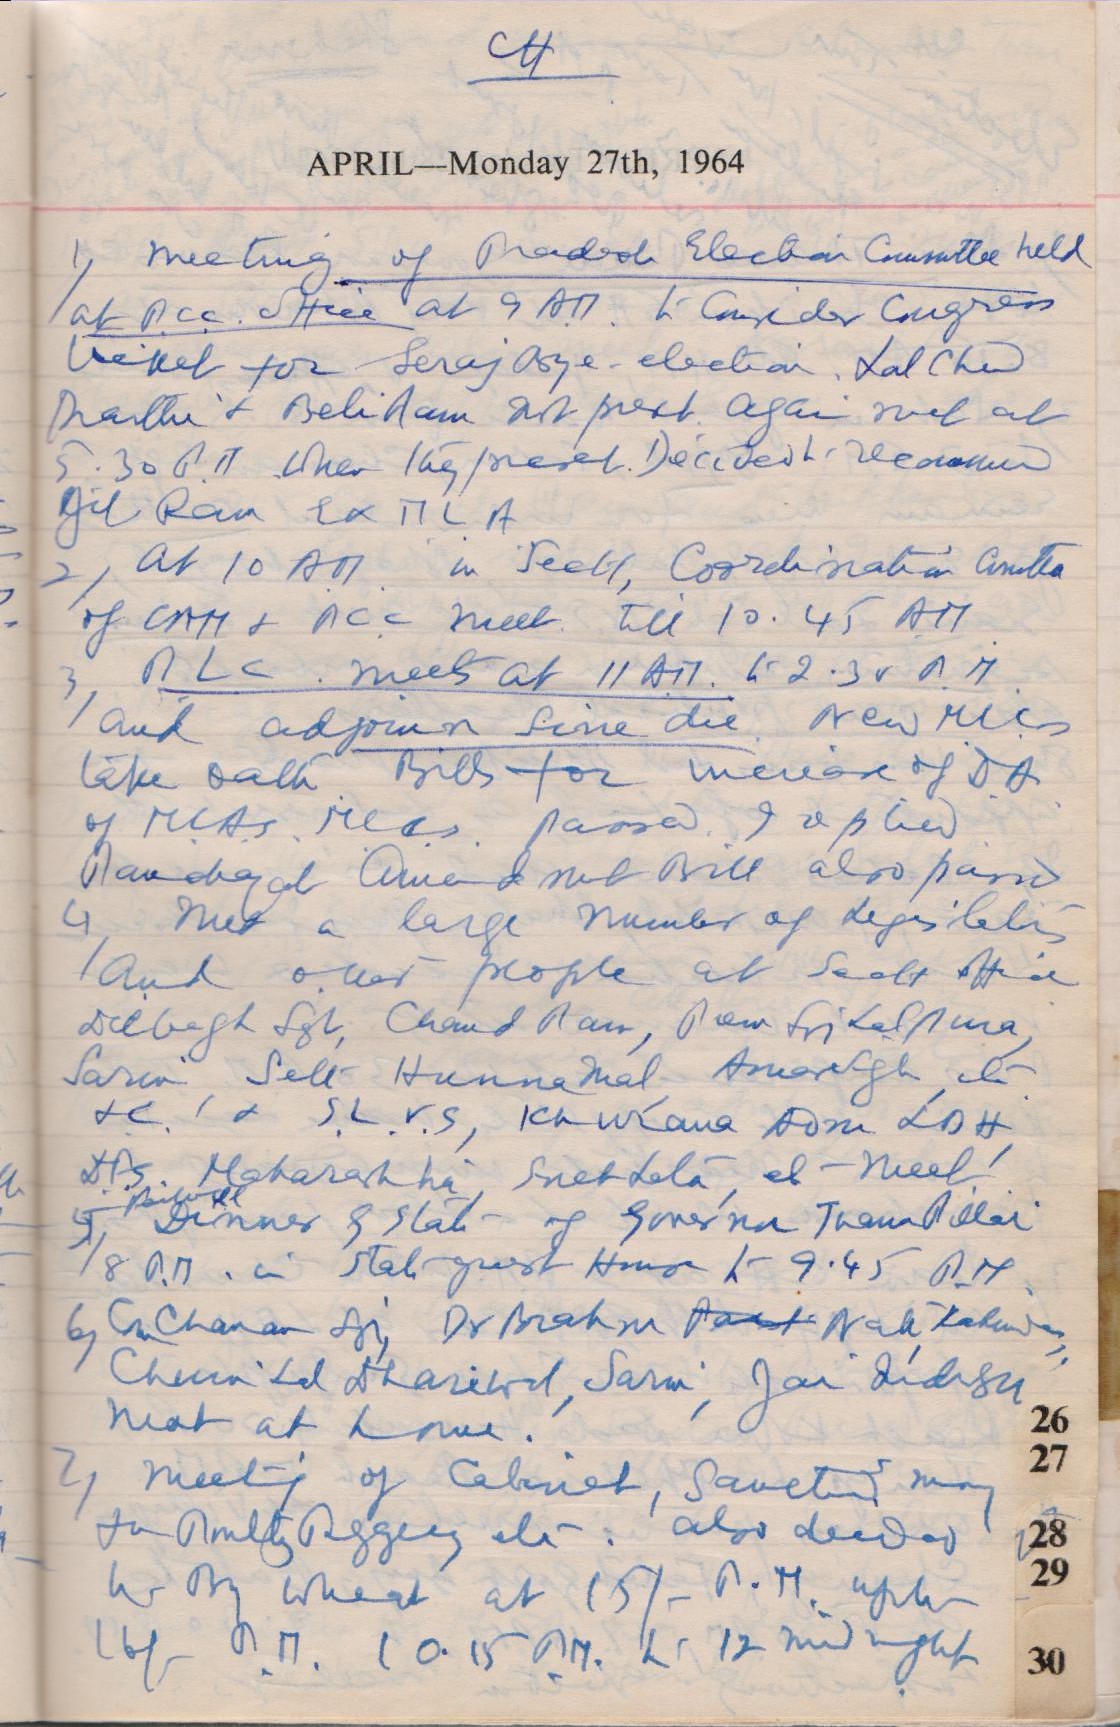 CH
APRIL—Monday 27th, 1964
1, Meeting of Pradesh Election Committee held
at P.C.C. Office at 9 A.M. to Consider Congress
ticket for Seraj Bye-election. Lal Chand
Prarthi & Beli Ram not prest. Again met at
5.30 P.M when they present. Decided to recommend
Ram Ex M L A
2, At 10 AM in Sectt, Coordination Cmttee
of & P.C.C meet till 10.45 AM
3, P L C. meets at 11 A.M. to 2.30 P.M.
and adjourn Sine die. New MLCs
take oath Bills for increase of D A
of MLAs MLCs. passed. I replied
Panchayat Amendment Bill also passed
4, Met a large number of Legislators
and other people at Sectt Office
Dilbagh Sgh, Chand Ram, Ram
Sarin Seth Hunna Mal Amar Sigh, etc
& S.L.V.S, Khurana
Maharashtra, Snehlata, et- meet!
5, Dinner by State of Governor Thanu Pillai
8 P.M. in State guest House to 9.45 P.M.
6, Com Chanan Sgh, Dr Brahm Nath,
Chuni Lal Dhariwal, Sarin, Jai
Meet at home.
7, Meeting of Cabinet, Sanctions many
for Poultry Piggery etc. also decided
to By wheat at 15/- P.M. upto
16/- P.M. 10.15 P.M. to 12 midnight
26
27
28
29
30